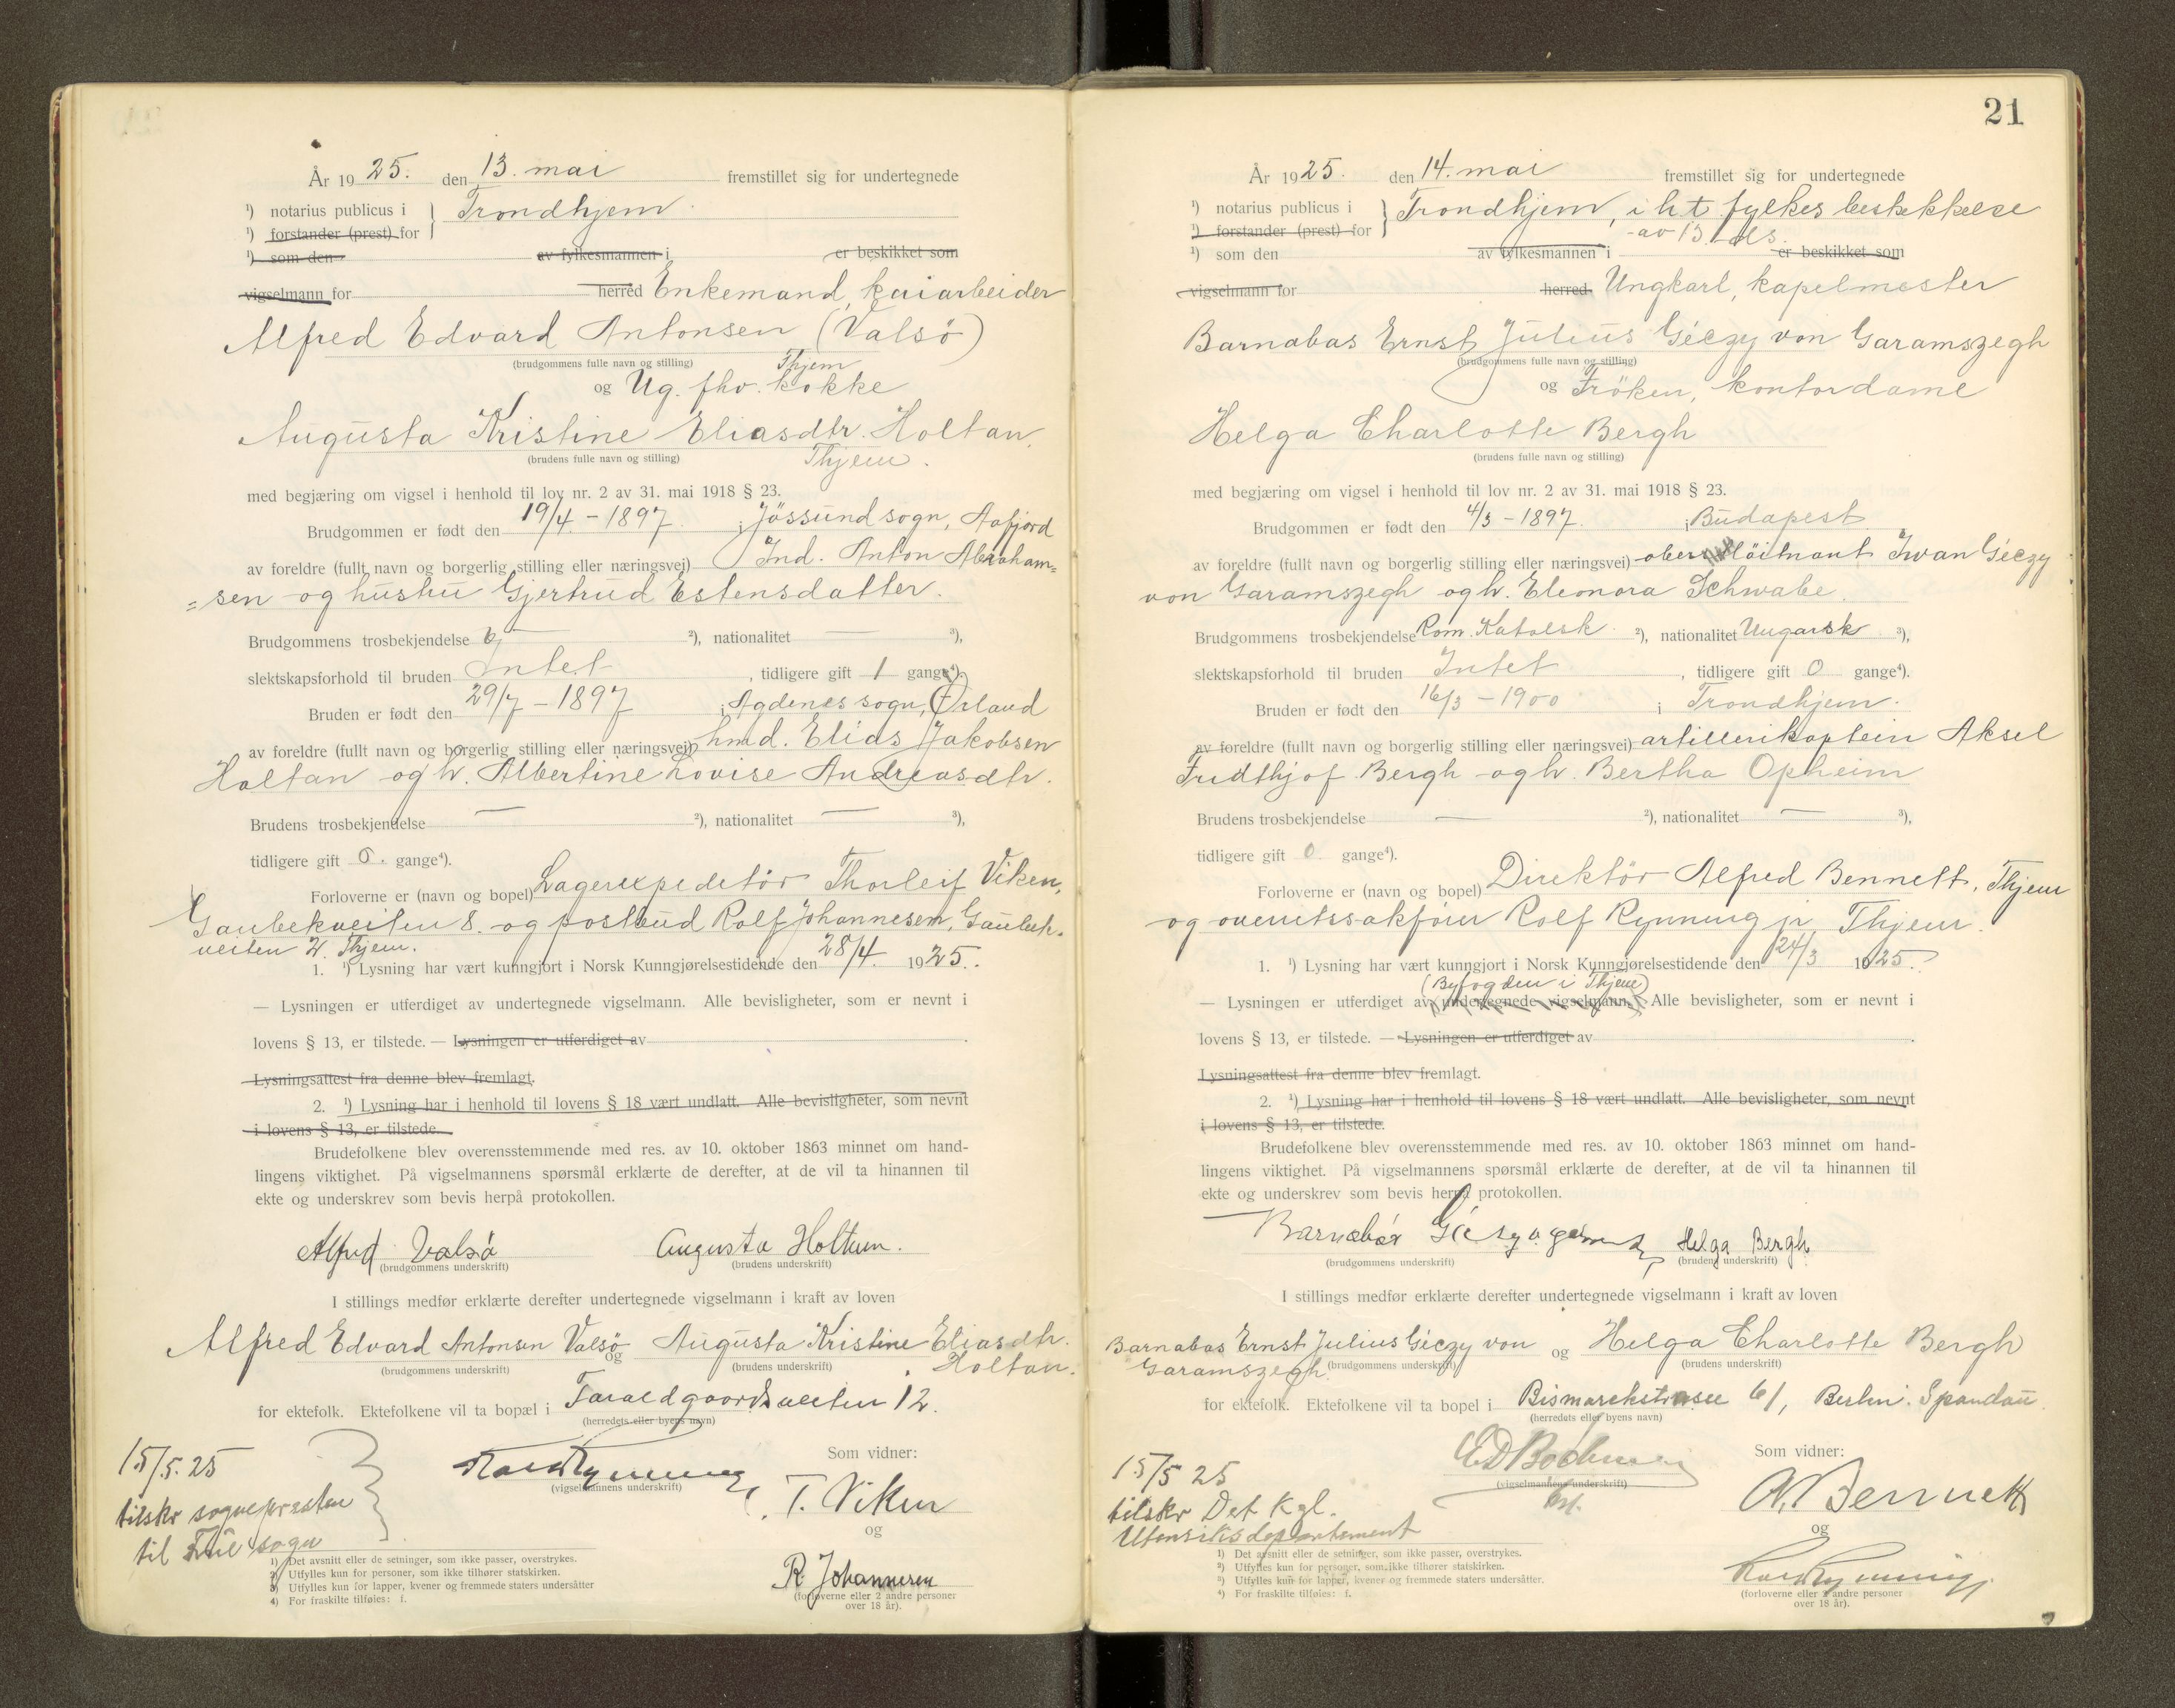 År 1925. den 13. mai fremstillet sig for undertegnede
¹) notarius publicus i } Trondhjem.
¹) forstander (prest) for
¹) som den av fylkesmannen i er beskikket som
vigselmann for herred Enkemand, kaiarbeider
Alfred Edvard Antonsen (Valsö)
(brudgommens fulle navn og stilling) Thjem
og Ug. fhv. kokke
Augusta Kristine Eliasdtr. Holtan.
(brudens fulle navn og stilling) Thjem.
med begjæring om vigsel i henhold til lov nr. 2 av 31. mai 1918 § 23.
Brudgommen er født den 19/4 - 1897 i Jössund sogn, Aafjord
av foreldre (fullt navn og borgerlig stilling eller næringsvei) Ind. Anton Abraham=
=sen og hustru Gjertrud Estensdatter.
Brudgommens trosbekjendelse — ²), nationalitet — ³),
slektskapsforhold til bruden Intet, tidligere gift 1 gange⁴).
Bruden er født den 29/7 - 1897 i Agdenes sogn, Ørland
av foreldre (fullt navn og borgerlig stilling eller næringsvei) hmd. Elias Jakobsen
Holtan og h. Albertine Lovise Andreasdtr.
Brudens trosbekjendelse — ²), nationalitet — ³),
tidligere gift 0. gange⁴).
Forloverne er (navn og bopel) Lagerexpeditör Thorleif Viken,
Gaubekveiten 8. og postbud Rolf Johannesen, Gaubek.
veiten Thjem.
1. ¹) Lysning har vært kunngjort i Norsk Kunngjørelsestidende den 28/4. 1925.
— Lysningen er utferdiget av undertegnede vigselmann. Alle bevisligheter, som er nevnt i
lovens § 13, er tilstede. — Lysningen er utferdiget av
Lysningsattest fra denne blev fremlagt.
2. ¹) Lysning har i henhold til lovens § 18 vært undlatt. Alle bevisligheter, som nevnt
i lovens § 13, er tilstede.
Brudefolkene blev overensstemmende med res. av 10. oktober 1863 minnet om hand-
lingens viktighet. På vigselmannens spørsmål erklærte de derefter, at de vil ta hinannen til
ekte og underskrev som bevis herpå protokollen.
Alfred Valsö Augusta Holtan.
(brudgommens underskrift) (brudens underskrift)
I stillings medfør erklærte derefter undertegnede vigselmann i kraft av loven
Alfred Edvard Antonsen Valsö og Augusta Kristine Eliasdtr.
(brudgommens underskrift) (brudens underskrift) Holtan.
for ektefolk. Ektefolkene vil ta bopæl i Taraldgaardsveiten 12.
(herredets eller byens navn)
15/5. 25 Som vidner:
(vigselmannens underskrift)
tilskr sognepresten T. Viken
til sogn og
¹) Det avsnitt eller de setninger, som ikke passer, overstrykes.
²) Utfylles kun for personer, som ikke tilhører statskirken.
³) Utfylles kun for lapper, kvener og fremmede staters undersåtter
4) For fraskilte tilføies: f.
R Johannesen
(forloverne eller 2 andre personer
over 18 år).
21
År 1925. den 14. mai fremstillet sig for undertegnede
¹) notarius publicus i } Trondhjem, i h t fylkes beskikkelse
¹) forstander (prest) for av 13. ds.
¹) som den av fylkesmannen i er beskikket som
vigselmann for herred Ungkarl, kapelmester
Barnabas Ernst Julius Géczy von Garamszegh
(brudgommens fulle navn og stilling)
og Fröken, kontordame
Helga Charlotte Bergh
(brudens fulle navn og stilling)
med begjæring om vigsel i henhold til lov nr. 2 av 31. mai 1918 § 23.
Brudgommen er født den 4/3 - 1897. i Budapest
av foreldre (fullt navn og borgerlig stilling eller næringsvei) löitnant Iwan Géczy
von Garamszegh og h. Eleonora Schwabe.
Brudgommens trosbekjendelse Rom. Katolsk. ²), nationalitet Ungarsk ³),
slektskapsforhold til bruden Intet, tidligere gift 0 gange⁴).
Bruden er født den 16/3 - 1900 i Trondhjem.
av foreldre (fullt navn og borgerlig stilling eller næringsvei) artillerikaptein Aksel
Fridthjof Bergh og h. Bertha Opheim
Brudens trosbekjendelse — ²), nationalitet — ³),
tidligere gift 0 gange⁴).
Forloverne er (navn og bopel) Direktör Alfred Bennett, Thjem
og overretssakförer Rolf Rynning jr Thjem.
1. ¹) Lysning har vært kunngjort i Norsk Kunngjørelsestidende den 24/3 1925.
(Byfogden i Thjem)
— Lysningen er utferdiget av undertegnede vigselmann. Alle bevisligheter, som er nevnt i
lovens § 13, er tilstede. — Lysningen er utferdiget av
Lysningsattest fra denne blev fremlagt.
2. ¹) Lysning har i henhold til lovens § 18 vært undlatt. Alle bevisligheter, som nevnt
i lovens § 13, er tilstede.
Brudefolkene blev overensstemmende med res. av 10. oktober 1863 minnet om hand-
lingens viktighet. På vigselmannens spørsmål erklærte de derefter, at de vil ta hinannen til
ekte og underskrev som bevis herpå protokollen.
Barnabás Géczy Helga Bergh
(brudgommens underskrift) (brudens underskrift)
I stillings medfør erklærte derefter undertegnede vigselmann i kraft av loven
Barnabas Ernst Julius Géczy von og Helga Charlotte Bergh
Garamszegh (brudgommens underskrift) (brudens underskrift)
for ektefolk. Ektefolkene vil ta bopel i Bismarckstrasse 61, Berlin. Spandau
(herredets eller byens navn)
15/5 25 Som vidner:
(vigselmannens underskrift)
tilskr Det Kgl. A. Bennett
Utenriksdepartement og
¹) Det avsnitt eller de setninger, som ikke passer, overstrykes.
²) Utfylles kun for personer, som ikke tilhører statskirken.
³) Utfylles kun for lapper, kvener og fremmede staters undersåtter.
⁴) For fraskilte tilføies: f.
(forloverne eller 2 andre personer
over 18 år).